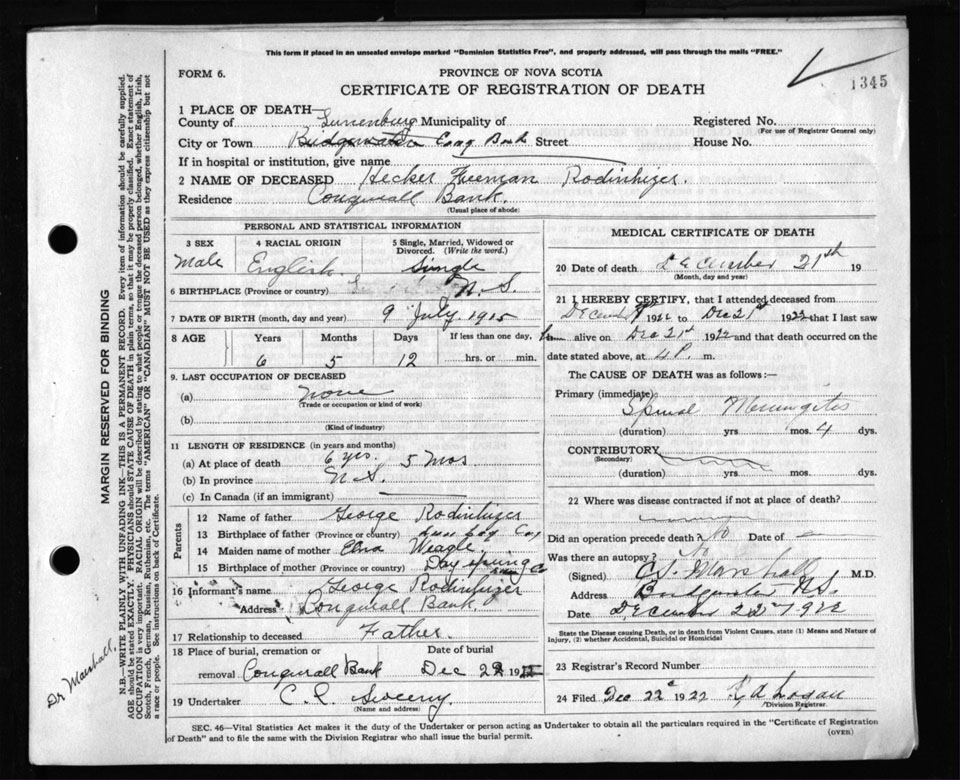 This form if placed in an unsealed envelope marked "Dominion Statistics Free", and properly addressed, will pass through the mails "FREE."
FORM 6.
PROVINCE OF NOVA SCOTIA
1345
CERTIFICATE OF REGISTRATION OF DEATH
1 PLACE OF DEATH—
County of Lunenburg Municipality of Registered No.
(For use of Registrar General only)
City or Town Bridgewater Conq Bank Street House No.
If in hospital or institution, give name
2 NAME OF DECEASED Hecker Freeman Rodinhizer.
Residence Conqurall Bank.
(Usual place of abode)
PERSONAL AND STATISTICAL INFORMATION
3 SEX 4 RACIAL ORIGIN 5 Single, Married, Widowed or Divorced. (Write the word.)
Male English. Single
6 BIRTHPLACE (Province or country) N.S.
7 DATE OF BIRTH (month, day and year) 9 July. 1915
8 AGE Years Months Days If less than one day,
6 5 12 hrs. or min.
9. LAST OCCUPATION OF DECEASED
(a) None
(Trade or occupation or kind of work)
(b)
(Kind of industry)
11 LENGTH OF RESIDENCE (in years and months)
(a) At place of death 6 yrs. 5 Mos
(b) In province N.S.
(c) In Canada (if an immigrant)
Parents
12 Name of father George Rodinhizer
13 Birthplace of father (Province or country)
14 Maiden name of mother Elna Weagle
15 Birthplace of mother (Province or country) Dayspring
16 Informant's name George Rodinhizer
Address Conqurall Bank.
17 Relationship to deceased Father.
18 Place of burial, cremation or removal Date of burial
Conqurall Bank Dec 22 19
19 Undertaker C. L. Sweeny
(Name and address)
MEDICAL CERTIFICATE OF DEATH
20 Date of death December 21th 19
(Month, day and year)
21 I HEREBY CERTIFY, that I attended deceased from
December 1922 to Dec 21st 1922 that I last saw
h alive on Dec 21st 1922 and that death occurred on the
date stated above, at 4 P. m.
The CAUSE OF DEATH was as follows:—
Primary (immediate)
Spinal Meningitis
(duration) yrs. mos. 4 dys.
CONTRIBUTORY
(Secondary)
(duration) yrs. mos. dys.
22 Where was disease contracted if not at place of death?
Did an operation precede death? No Date of
Was there an autopsy? No
(Signed) C.S. Marshall M.D.
Address Bridgewater N.S.
Date December 22 1922
State the Disease causing Death, or in death from Violent Causes. state (1) Means and Nature of Injury, (2) whether Accidental, Suicidal or Homicidal
23 Registrar's Record Number
24 Filed Dec 22 1922
Division Registrar.
SEC. 46—Vital Statistics Act makes it the duty of the Undertaker or person acting as Undertaker to obtain all the particulars required in the "Certificate of Registration
of Death" and to file the same with the Division Registrar who shall issue the burial permit.
(OVER)
MARGIN RESERVED FOR BINDING
N.B.—WRITE PLAINLY WITH UNFADING INK—THIS IS A PERMANENT RECORD. Every item of information should be carefully supplied.
AGE should be stated EXACTLY. PHYSICIANS should STATE CAUSE OF DEATH in plain terms, so that it may be properly classified. Exact statement of
OCCUPATION is very important. RACIAL ORIGIN will be described by stating to what people or tongue the deceased person belonged, whether English, Irish,
Scotch, French, German, Russian, Ruthenian, etc. The terms "AMERICAN" or "CANADIAN" MUST NOT BE USED as they express citizenship but not
a race or people. See instructions on back of Certificate.
Dr Marshall,